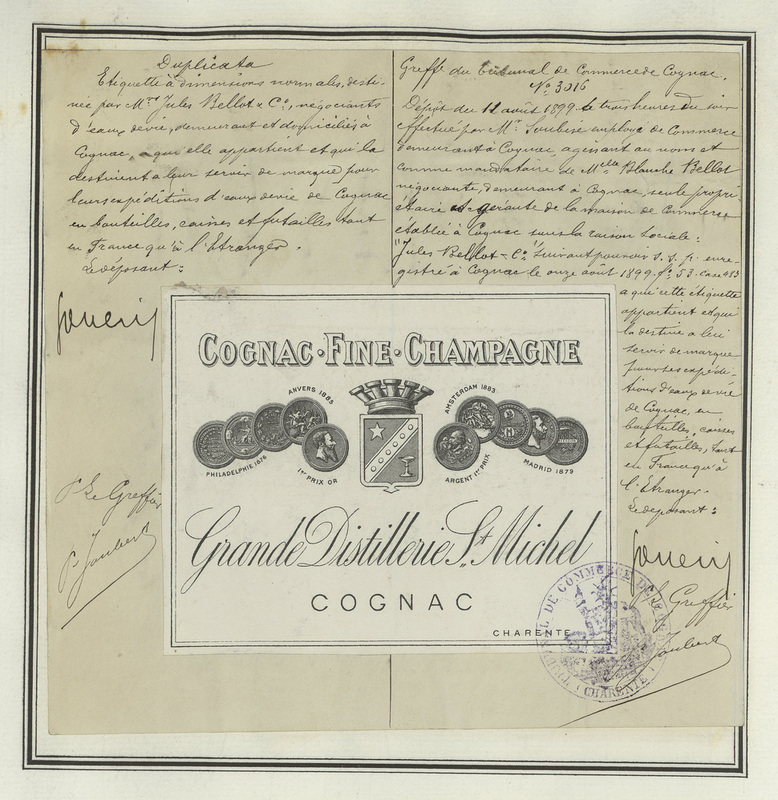 Duplicata
Etiquette à dimensions normales, desti-
née par Mrs Jules Bellot & Co, négociants
d'eaux de vie, demeurant et domiciliés à
Cognac, qu'elle appartient et qui la
destinent à leur servir de marque pour
leurs expéditions d'eaux de vie de Cognac
en bouteilles, caisses et futailles tant
en France qu'à l'Etranger.
Le déposant:
Pr Le Greffier
P. Joubert
Greffe du tribunal de Commerce de Cognac.
No 3016
Dépôt du 11 août 1899 à trois heures du soir
effectué par Mr employé de Commerce
demeurant à Cognac, agissant au nom et
comme mandataire de Melle Blanche Bellot
négociante, demeurant à Cognac, seule propri-
étaire et gérante de la maison de Commerce
établie à Cognac sous la raison sociale:
"Jules Bellot & Co" suivant pouvoir s. s. p. enre-
gistré à Cognac le onze août 1899. fo 53. case 413
a qui cette étiquette
appartient et qui
la destine à lui
servir de marque
pour ses expédi-
tions d'eaux de vie
de Cognac, en
bouteilles, caisses
et futailles, tant
en France qu'à
l'Etranger.
Le déposant:
Pr Le Greffier
P. Joubert
COGNAC·FINE·CHAMPAGNE
ANVERS 1885
AMSTERDAM 1883
PHILADELPHIE 1876
1er PRIX OR
ARGENT 1er PRIX
MADRID 1879
Grande Distillerie St Michel
COGNAC
CHARENTE
TRIBUNAL DE COMMERCE DE COGNAC
(CHARENTE)